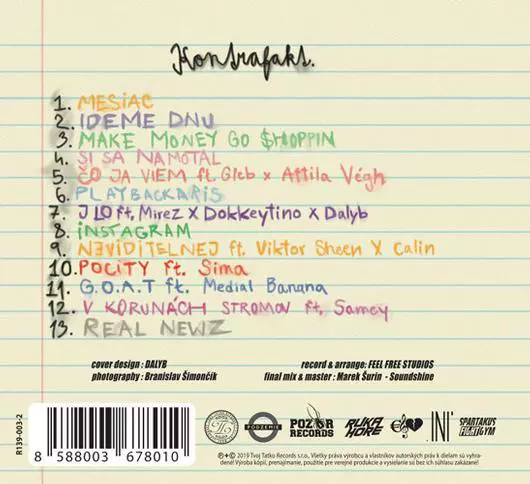 Kontrafakt.
1. MESiAC
2. IDEME DNU
3. MAKE MONEY GO $HOPPIN
4. SI SA NAMOTAL
5. ČO JA VIEM ft. Gleb x Attila Végh
6. PLAYBACKARiS
7. J LO ft. Mirez X Dokkeytino x Dalyb
8. iNSTAGRAM
9. NEViDiTELNEJ ft. Viktor Sheen X Calin
10. POCiTY ft. Sima
11. G.O.A.T ft. Medial Banana
12. V KORUNÁCH STROMOV ft. Samey
13. REAL NEWZ
cover design : DALYB
photography : Branislav Šimončík
record & arrange: FEEL FREE STUDIOS
final mix & master : Marek Šurin - Soundshine
R139-003-2
8 588003 678010
PODZEMIE
POZOR RECORDS
RUKA HORE
IN'
SPARTAKUS FIGHT GYM
℗ + © 2019 Tvoj Tatko Records s.r.o., Všetky práva výrobcu a vlastníkov autorských práv k dielam sú vyhra-
dené! Výroba kópií, prenajímanie, použitie pre verejné produkcie a vysielanie sú bez ich súhlasu zakázané!